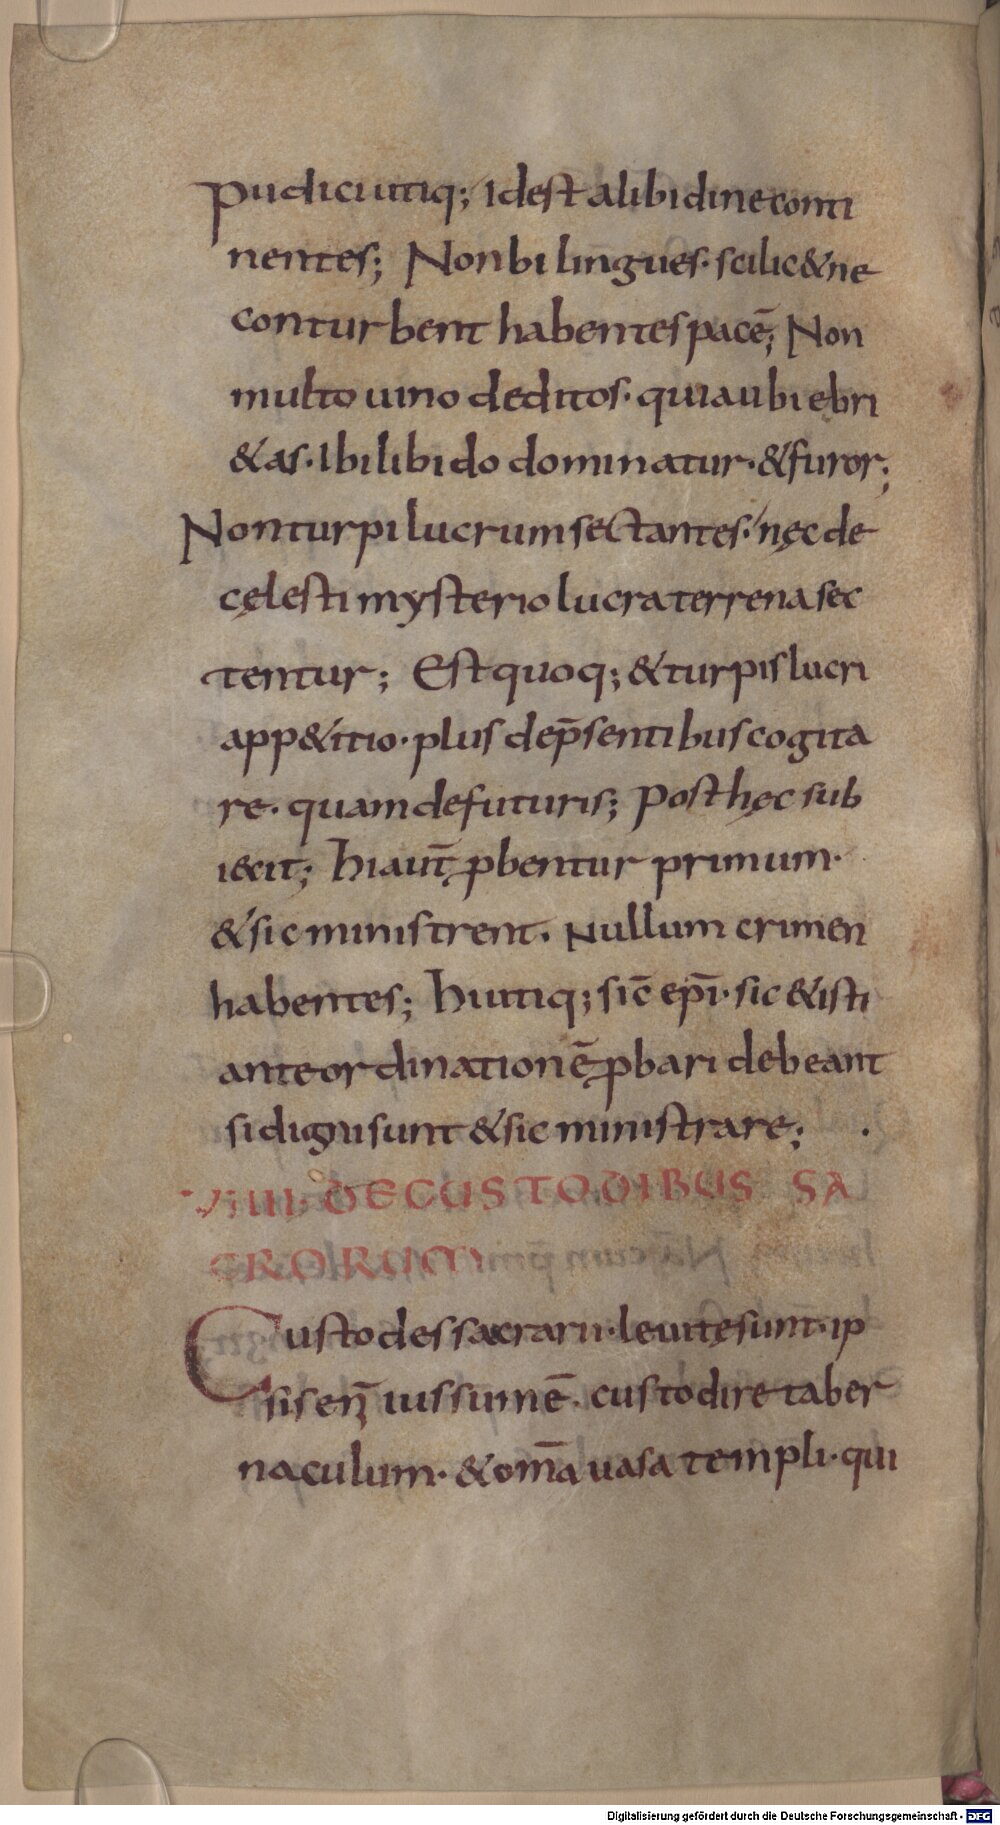 pudici utiq; Idest alibidine conti
nentes; Non bilingues· scilic& ne
conturbent habentes pacē; Non
multo uino deditos· quia ubi ebri
&as· Ibi libido dominatur· & furor;
Non turpi lucrum sectantes· nęc de
cęlesti mysterio lucra terrena sec
tentur; Est quoq; & turpis lucri
app&itio· plus dep̄sentibus cogita
re· quam defuturis; post hęc sub
iecit; hi aut̄ ꝓbentur primum·
& sic ministrent· Nullum crimen
habentes; hi utiq; sic̄ ep̄i· sic & isti
ante ordinationē ꝓbari debeant
si digni sunt & sic ministrare;
VIIII· DE CUSTODIBUS SA
CRORUM
Custodes sacrarii· leuitę sunt· ip
sis en̄ iussum ē· custodire taber
naculum· & om̄a uasa templi· qui
Digitalisierung gefördert durch die Deutsche Forschungsgemeinschaft - DFG